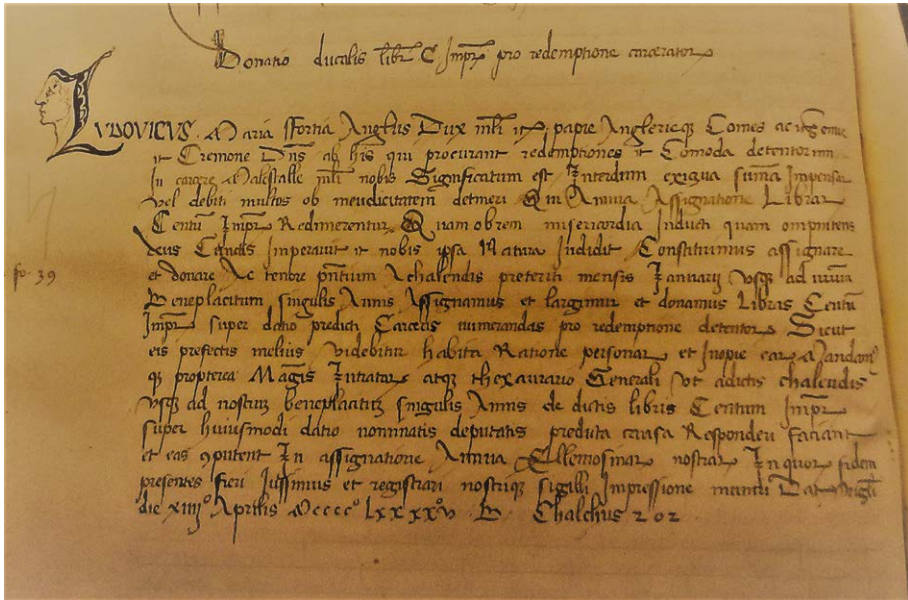 Donatio ducalis libr C Impr pro redemptione carcerator
LVDOVICVS Maria Sfortia Anglus Dux mli &c papie Anglerieq Comes ac
et Cremone Dns ab his qui procurant redemptiones et Comoda detentorum
In carcere Malestalle mli nobis Significatum est Interdum exigua suma Impensar
vel debiti multos ob mendicitatem detineri Qui Annua Assignatione Librar
Centu Impr Redimerentur Quam obrem misericordia Inducti quam omnipotens
deus Cunctis Imperavit et nobis ipsa Natura Indidit Constituimus assignare
fo 39
et donare Ac tenore pntium Achalendis preteriti mensis Januarij usq ad
Beneplacitum singulis Annis Assignamus et largimur et donamus Libras Centu
Impr super datio predicti Carceris numerandas pro redemptione detentor Sicut
eis prefectis melius videbitur habita Ratione personar et Inopie ear Mandam
q propterea Magris Intrator atq thexaurario Generali vt adictis chalendis
vsq ad nostrum beneplacitum singulis Annis de dictis libris Centum Impr
super huiusmodi datio nominatis deputatis Responderi faciant
et eas 9putent In assignatione Annua Ellemosinar nostrar In quor fidem
presentes fieri Iussimus et registrari nostriq sigilli Impressione muniri Dat
die xiiij Aprilis Mcccc lxxxxv B Chalchus